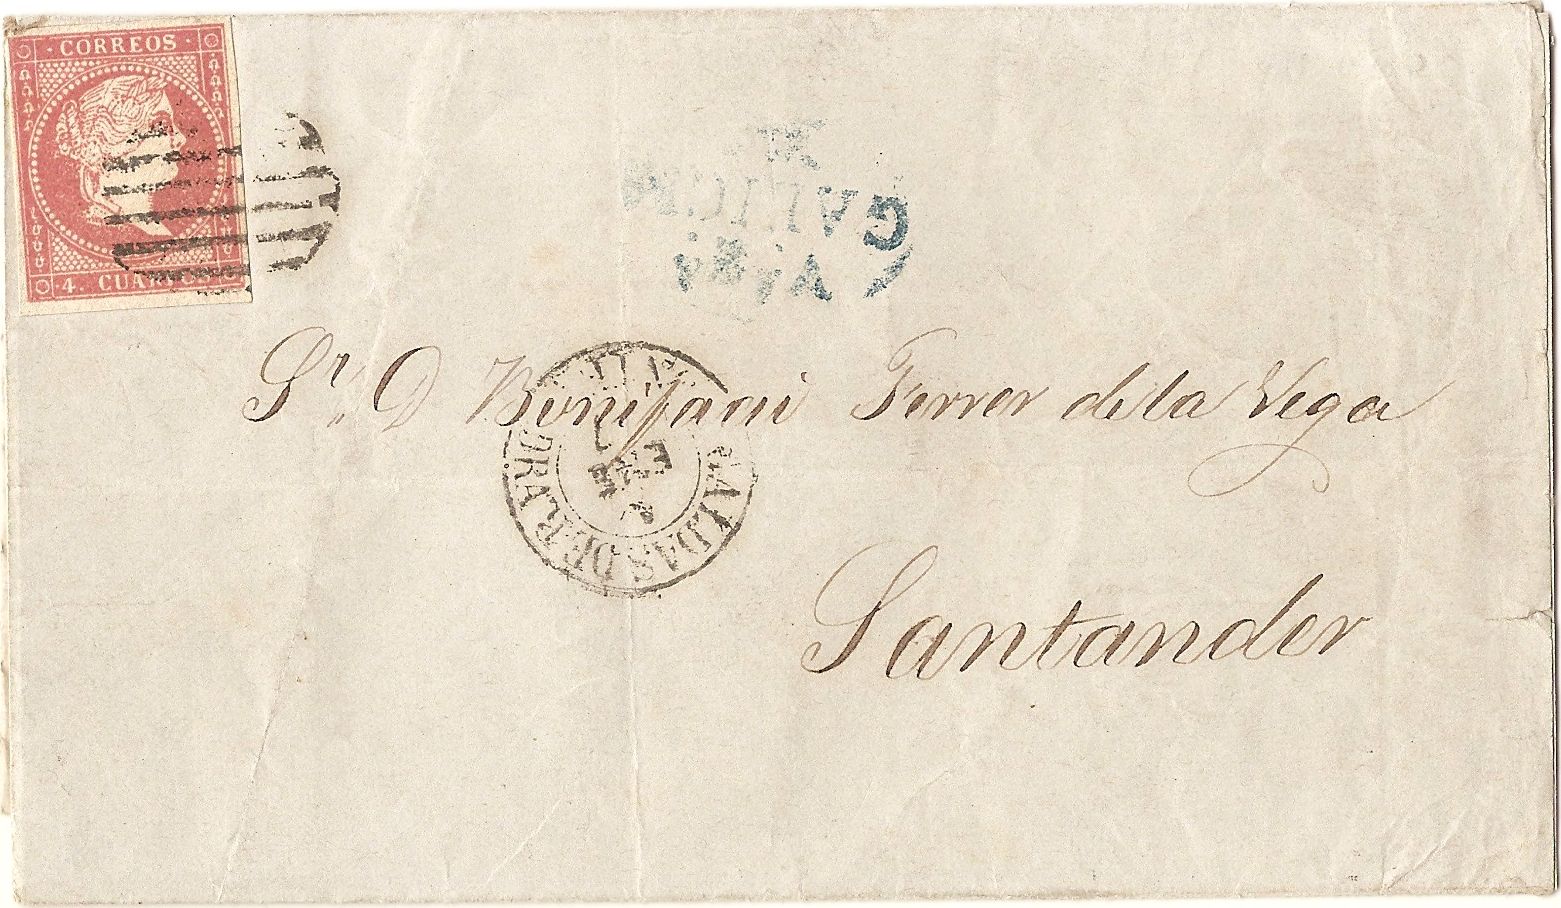 CORREOS
4. CUARTOS
GALICIA
Sr. D Bonifaci Ferrer de la Vega
ENE
CALDAS DE R
Santander